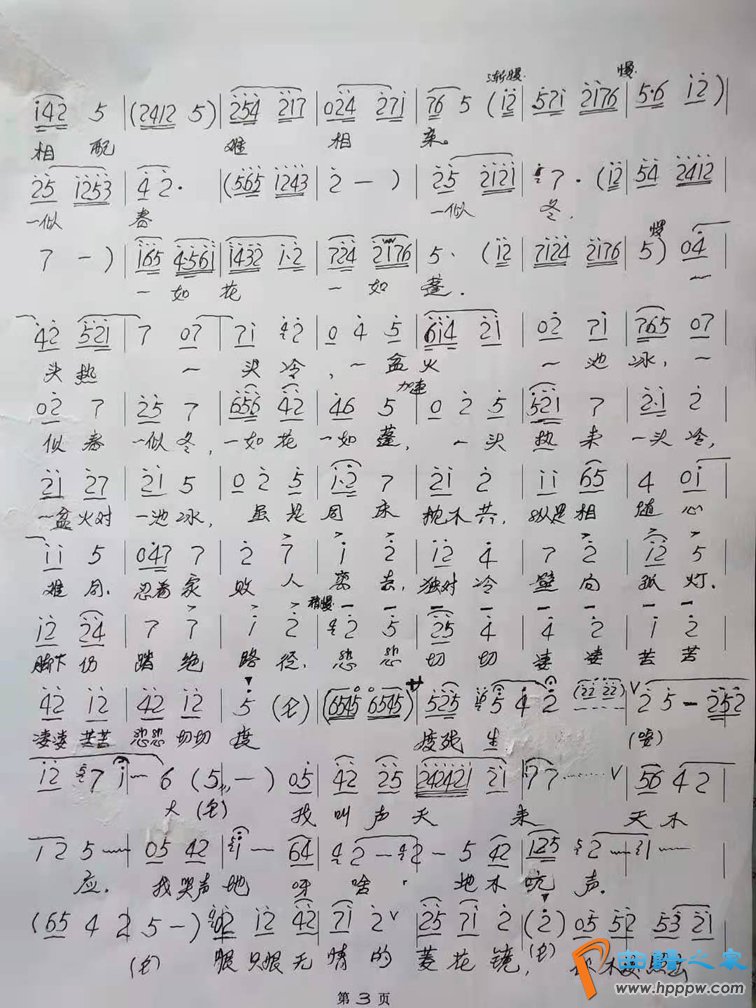 渐慢 慢
i42 5 | (2412 5) | 254 217 | 024 271 | 76 5 (i2 | 571 2176 | 5·6 i2)
相 配 难 相 来.
25 1253 | 42· | (565 1243 | 2 — ) | 25 2121 | 7· (i2 | 54 2412
一似 春 一似 冬.
慢
7 — ) | 165 4·561 | 1432 1·2 | 724 2176 | 5· (i2 | 7124 2176 | 5) 04
一 如 花 一 如 蓬. 一
42 521 | 7 07 | 71 42 | 0 4 5 | 614 21 | 02 71 | 765 07
头 热 一 头 冷, 一 盆 火 一 池 冰, 一
加速
02 7 | 25 7 | 655 42 | 46 5 | 0 2 5 | 521 7 | 2·1 2
似 春 一似 冬, 一如 花 一如 蓬, 一头 热 来 一头 冷,
21 27 | 21 5 | 02 5 | 1·2 7 | 21 2 | 11 65 | 4 01
一盆 火对 一池 冰, 虽 是 同 床 枕木 共, 纵是 相 随 心
11 5 | 047 7 | 2 7 | 1 2 | 12 4 | 7 2 | 12 5
难 同. 忍看 家 败 人 离 去, 独对 冷 壁 向 孤 灯.
稍慢
12 24 | 7 7 | 1 2 | 2 5 | 25 4 | 4 2 | 1 2
脚下 仿 踏 绝 路 径, 悲 悲 切 切 凄 凄 苦 苦
42 12 | 42 12 | 5 (仓) | (6545 6545) | 525 5 4 2 | 2 5 — 252
凄凄 苦苦 悲悲 切切 度 度残 生 (唉)
12 7 1 — 6 (5 — ) 05 | 42 25 | 242421 21 | 77 …… | 56 42
大 (仓) 我 叫 声 天 来 天 不
12 5 | 05 42 | 1 — 64 | 2 — 2 — 5 42 | 125 2 — 1 —
应. 我 哭声 地 呀 啥 地 不 吭 声.
(65 4 2 5 — ) 02 12 42 | 71 2 | 25 71 2 | (2) 05 52 53 21
(仓) 恨 只恨 无 情 的 菱 花 镜, (仓)
曲谱之家
www.hppw.com
第 3 页